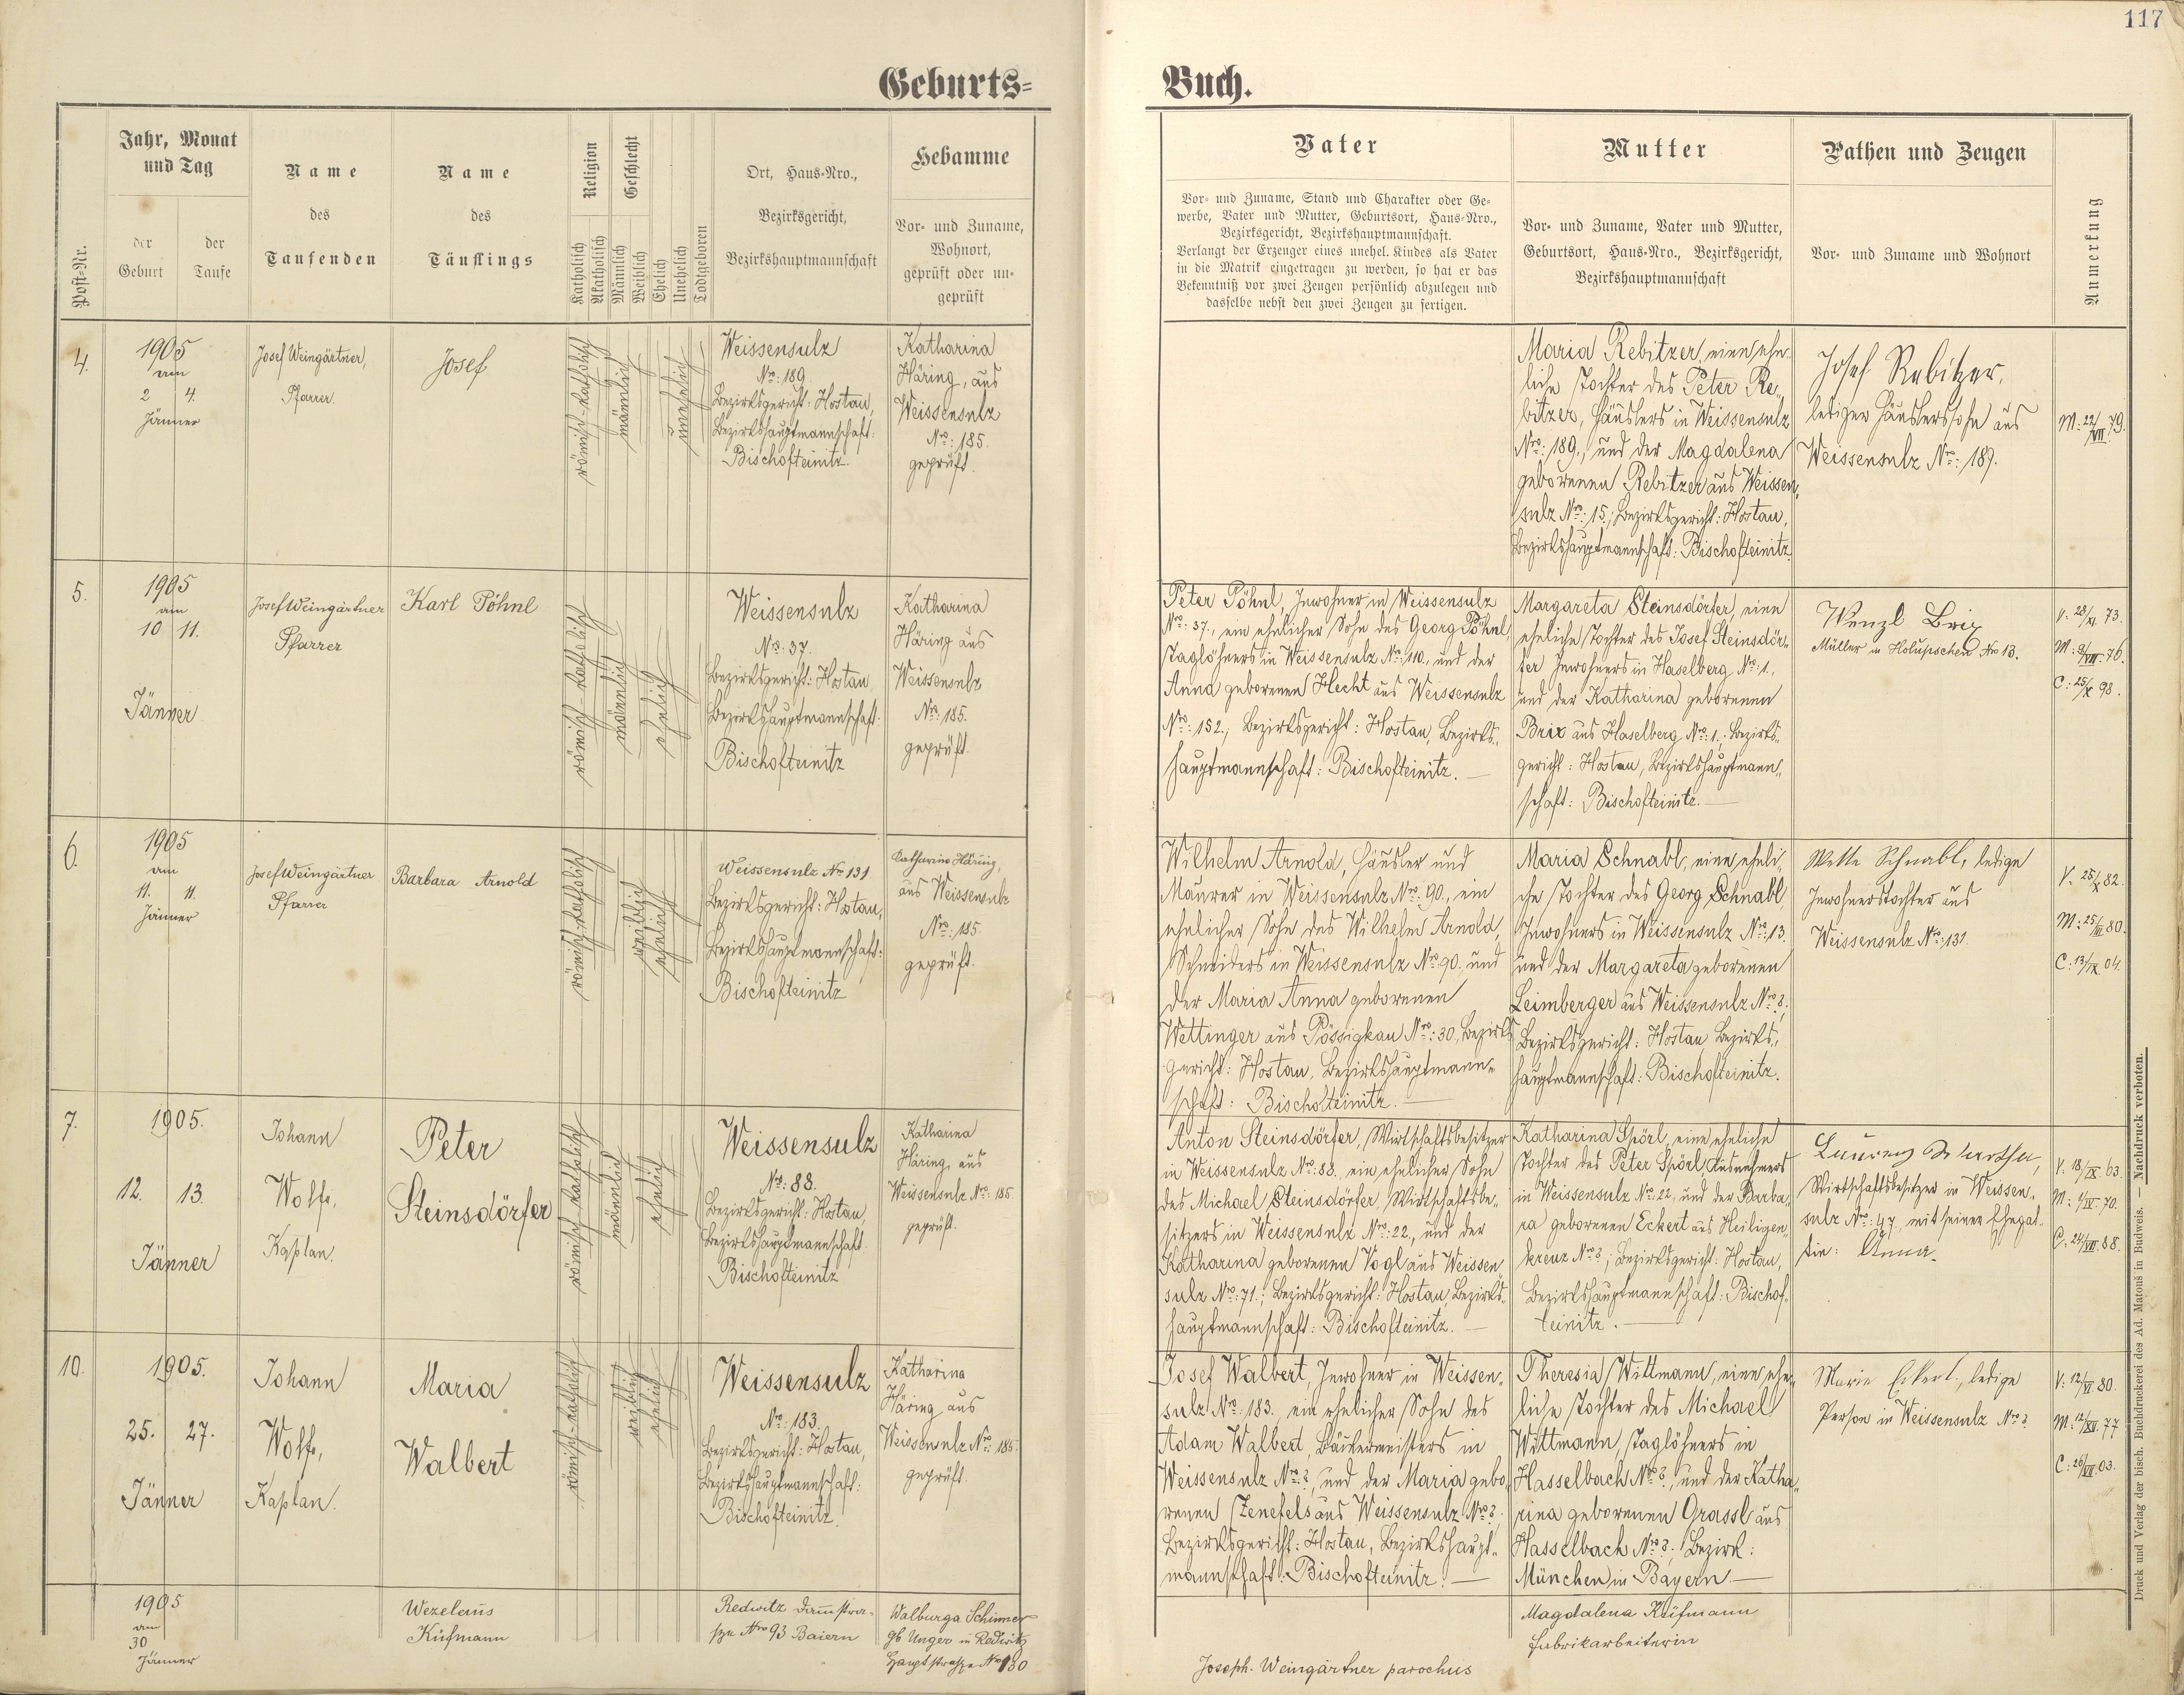 117
Geburts-
Buch.
Post-Nr.
Jahr, Monat
und Tag
der
Geburt
der
Taufe
Name
des
Taufenden
Name
des
Täuflings
Religion
Katholisch
Akatholisch
Geschlecht
Männlich
Weiblich
Ehelich
Unehelich
Todtgeboren
Ort, Haus-Nro.,
Bezirksgericht,
Bezirkshauptmannschaft
Hebamme
Vor- und Zuname,
Wohnort,
geprüft oder un-
geprüft
Vater
Vor- und Zuname, Stand und Charakter oder Ge-
werbe, Vater und Mutter, Geburtsort, Haus-Nro.,
Bezirksgericht, Bezirkshauptmannschaft.
Verlangt der Erzeuger eines unehel. Kindes als Vater
in die Matrik eingetragen zu werden, so hat er das
Bekenntniß vor zwei Zeugen persönlich abzulegen und
dasselbe nebst den zwei Zeugen zu fertigen.
Mutter
Vor- und Zuname, Vater und Mutter,
Geburtsort, Haus-Nro., Bezirksgericht,
Bezirkshauptmannschaft
Pathen und Zeugen
Vor- und Zuname und Wohnort
Anmerkung
4.
1905
am
2 4.
Jänner
Josef Weingärtner,
Pfarrer.
Josef
römisch-katholisch
männlich
unehelich
Weissensulz
Nro: 189
Bezirksgericht: Hostau,
Bezirkshauptmannschaft:
Bischofteinitz.
Katharina
Häring, aus
Weissensulz
Nro: 185.
geprüft.
Maria Rebitzer, eine ehe-
liche Tochter des Peter Re-
bitzer, Häuslers in Weissensulz
Nro: 189., und der Magdalena
geborenen Rebitzer aus Weissen-
sulz Nro: 15.; Bezirksgericht: Hostau,
Bezirkshauptmannschaft: Bischofteinitz
Josef Rebitzer,
lediger Häuslerssohn aus
Weissensulz Nro: 189.
M: 22/VII. 79.
5.
1905
am
10 11.
Jänner
Josef Weingärtner
Pfarrer
Karl Pöhnl
römisch-katholisch
männlich
ehelich
Weissensulz
Nro: 37.
Bezirksgericht: Hostau,
Bezirkshauptmannschaft:
Bischofteinitz
Katharina
Häring aus
Weissensulz
Nro: 185.
geprüft.
Peter Pöhnl, Inwohner in Weissensulz
Nro: 37., ein ehelicher Sohn des Georg Pöhnl,
Taglöhners in Weissensulz Nro: 110., und der
Anna geborenen Hecht aus Weissensulz
Nro: 152., Bezirksgericht: Hostau, Bezirks-
hauptmannschaft: Bischofteinitz.
Margareta Steinsdörfer, eine
eheliche Tochter des Josef Steinsdör-
fer Inwohners in Haselberg Nro: 1.,
und der Katharina geborenen
Brix aus Haselberg Nro: 1.; Bezirks-
gericht: Hostau, Bezirkshauptmann-
schaft: Bischofteinitz.
Wenzl Brix
Müller in Holupschen Nro 13.
V: 28/XI. 73.
M: 9/VIII. 76.
C: 25/X 98.
6.
1905
am
11. 11.
Jänner
Josef Weingärtner
Pfarrer
Barbara Arnold
römisch-katholisch
weiblich
ehelich
Weissensulz Nro 131
Bezirksgericht: Hostau,
Bezirkshauptmannschaft:
Bischofteinitz
Katharina Häring,
aus Weissensulz
Nro: 185.
geprüft.
Wilhelm Arnold, Häusler und
Maurer in Weissensulz Nro: 90., ein
ehelicher Sohn des Wilhelm Arnold,
Schneiders in Weissensulz Nro 90. und
der Maria Anna geborenen
Wettinger aus Pössigkau Nro: 30, Bezirks-
gericht: Hostau, Bezirkshauptmann-
schaft: Bischofteinitz.
Maria Schnabl, eine eheli-
che Tochter des Georg Schnabl,
Inwohners in Weissensulz Nro: 13.
und der Margareta geborenen
Leimberger aus Weissensulz Nro ?;
Bezirksgericht: Hostau Bezirks-
hauptmannschaft: Bischofteinitz.
Schnabl, ledige
Inwohnerstochter aus
Weissensulz Nro: 131.
V. 25/X 82.
M: 25/III 80.
C: 13/IX. 04.
7.
1905.
12. 13.
Jänner
Johann
Wolf,
Kaplan.
Peter
Steinsdörfer
römisch-katholisch
männlich
ehelich
Weissensulz
Nro: 88.
Bezirksgericht: Hostau,
Bezirkshauptmannschaft:
Bischofteinitz
Katharina
Häring, aus
Weissensulz Nro: 185.
geprüft.
Anton Steinsdörfer, Wirtschaftsbesitzer
in Weissensulz Nro: 88. ein ehelicher Sohn
des Michael Steinsdörfer, Wirtschaftsbe-
sitzers in Weissensulz Nro: 22., und der
Katharina geborenen Vogl aus Weissen-
sulz Nro: 71.; Bezirksgericht: Hostau, Bezirks-
hauptmannschaft: Bischofteinitz.
Katharina Spörl, eine eheliche
Tochter des Peter Spörl, Ausnehmers
in Weissensulz Nro: 22, und der Barba-
ra geborenen Eckert aus Heiligen-
kreuz Nro ?; Bezirksgericht: Hostau,
Bezirkshauptmannschaft: Bischof-
teinitz.
Wirtschaftsbesitzer in Weissen-
sulz Nro: 47., mit seiner Ehegat-
tin: Anna.
V. 18/IX. 63.
M: 4/IV. 70.
C: 24/VII. 88.
10.
1905.
25. 27.
Jänner
Johann
Wolf,
Kaplan.
Maria
Walbert
römisch-katholisch
weiblich
ehelich
Weissensulz
Nro: 183.
Bezirksgericht: Hostau,
Bezirkshauptmannschaft:
Bischofteinitz.
Katharina
Häring aus
Weissensulz Nro: 185.
geprüft.
Josef Walbert, Inwohner in Weissen-
sulz Nro: 183. ein ehelicher Sohn des
Adam Walbert, Bäckermeisters in
Weissensulz Nro: ?, und der Maria gebo-
renen Zenefels aus Weissensulz Nro ?;
Bezirksgericht: Hostau, Bezirkshaupt-
mannschaft: Bischofteinitz.
Theresia Wittmann, eine ehe-
liche Tochter des Michael
Wittmann, Taglöhners in
Hasselbach Nro ?, und der Katha-
rina geborenen Grassl aus
Hasselbach Nro ?; Bezirk:
München in Bayern
Marie Eckert, ledige
Person in Weissensulz Nro ?
V: 12/VI. 80.
M: 12/XII. 77
C: 26/VII. 03.
1905
am
30
Jänner
Wezelaus
Küfmann
Redwitz Dammstra-
sze Nro 93 Baiern
Walburga Schimmer
gb Unger in Redwitz
Hauptstrasze Nro 130
Magdalena Küfmann
Fabrikarbeiterin
Joseph. Weingärtner parochus
Druck und Verlag der bisch. Buchdruckerei des Ad. Matouš in Budweis. — Nachdruck verboten.